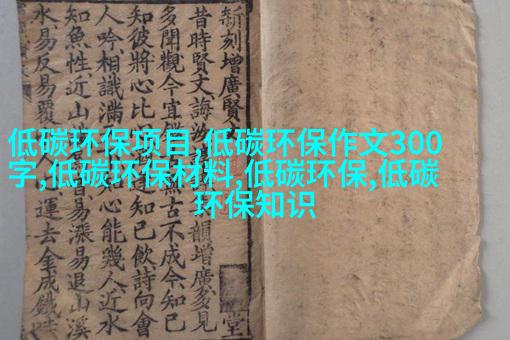 低碳环保项目,低碳环保作文300
字,低碳环保材料,低碳环保,低碳
环保知识
新刻增廣賢 堂
昔時賢文誨汝 韻增廣多見
多聞觀今宜 無古不成今知己
知彼將心比 知己飲詩向會
人吟相識滿 心能幾人近水
知魚性近山 易漲易退山溪
水易反易覆 人 運去金成鐵時